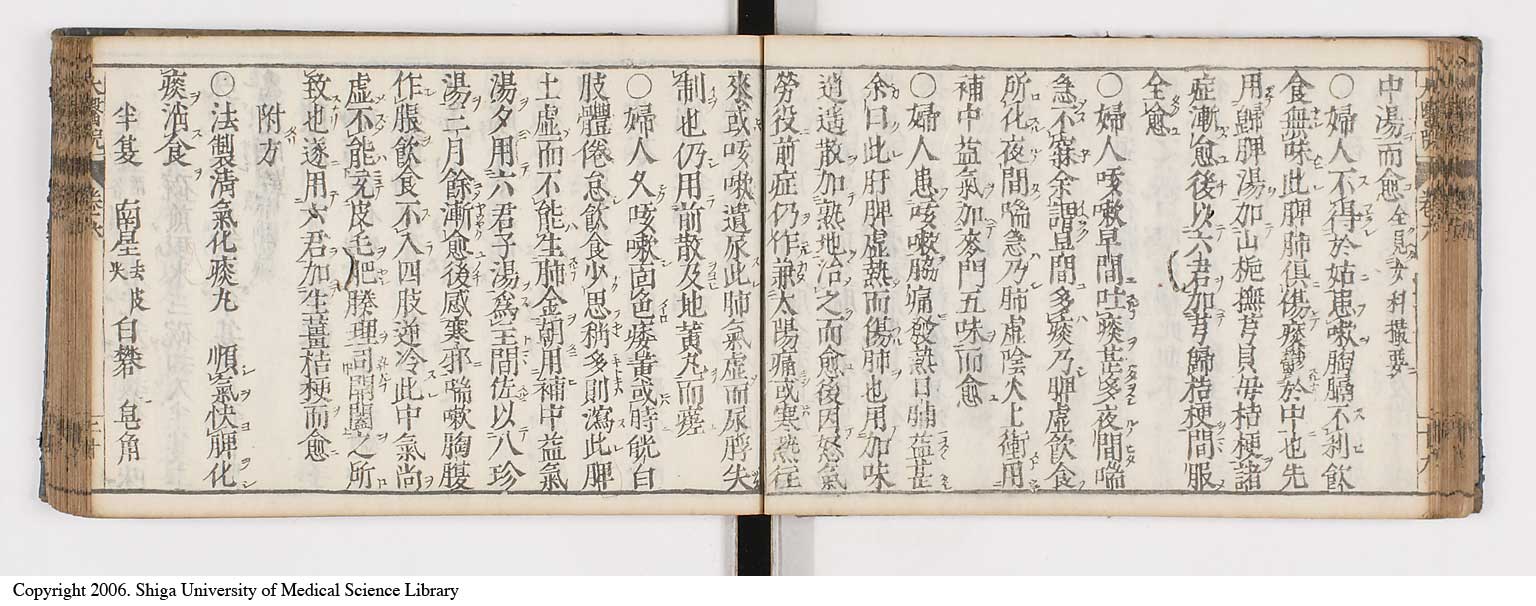 中湯而愈全見女科撮要
〇婦人不得於姑患嗽胸膈不利飲
食無味此脾肺俱傷痰鬱於中也先
用歸脾湯加山梔撫芎貝母桔梗諸
症漸愈後以六君加芎歸桔梗間服
全愈
〇婦人咳嗽早間吐痰甚多夜間喘
急不寐余謂早間多痰乃脾虛飲食
所化夜間喘急乃肺虛陰火上衝用
補中益氣加麥門五味而愈
〇婦人患咳嗽脇痛發熱日晡益甚
余曰此肝脾虛熱而傷肺也用加味
逍遥散加熟地治之而愈後因怒氣
勞役前症仍作兼太陽痛或寒熱往
來或咳嗽遺尿此肺氣虛而尿脬失
制也仍用前散及地黃丸而瘥
〇婦人久咳嗽面色痿黃或時㿠白
肢體倦怠飲食少思稍多則瀉此脾
土虛而不能生肺金朝用補中益氣
湯夕用六君子湯爲主間佐以八珍
湯三月餘漸愈後感寒邪喘嗽胸腹
作脹飲食不入四肢逆冷此中氣尚
虛不能充皮毛肥腠理司開闔之所
致也遂用六君加生薑桔梗而愈
附方
〇法製清氣化痰丸 順氣快脾化
痰消食
半夏 南星去皮尖 白礬 皂角